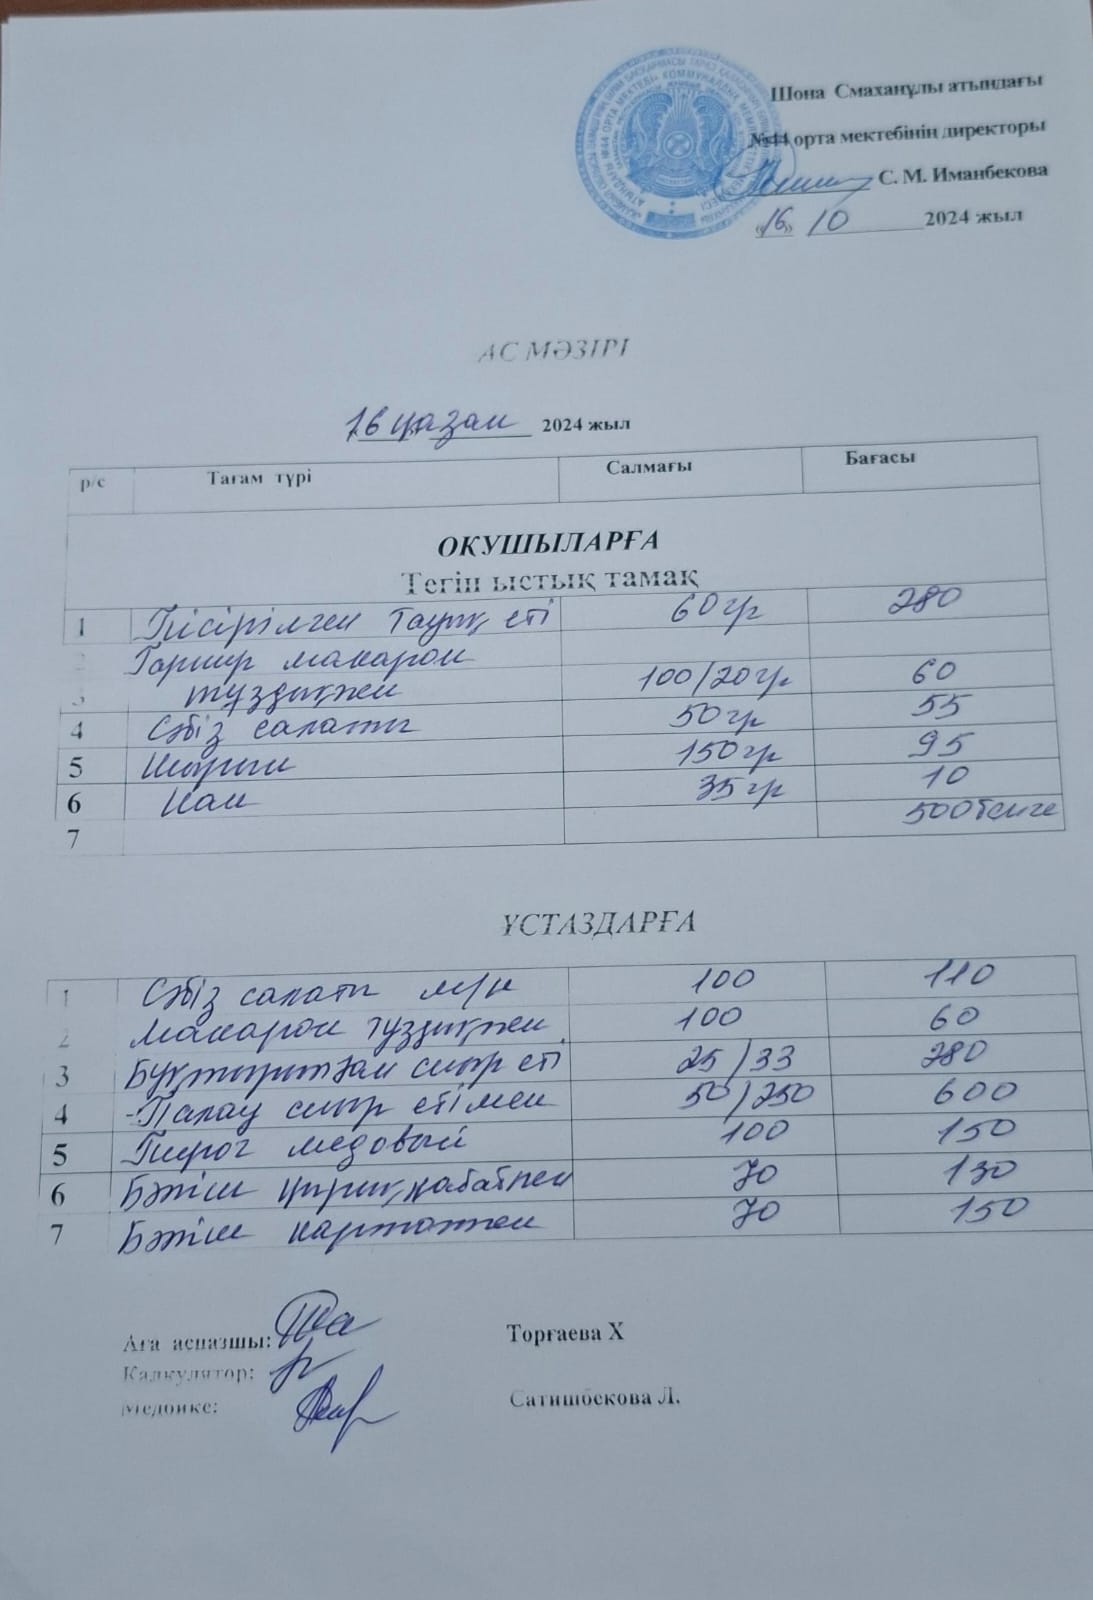 Шона Смаханұлы атындағы
№44 орта мектебінің директоры
С. М. Иманбекова
«16» 10 2024 жыл
АС МӘЗІРІ
16 қазан 2024 жыл
р/с Тағам түрі Салмағы Бағасы
ОҚУШЫЛАРҒА
Тегін ыстық тамақ
1 Пісірілген тауық еті 60гр 280
2 Гарнир макарон
3 тұздықпен 100/20гр 60
4 Сәбіз салаты 50гр 55
5 150гр 95
6 Нан 35гр 10
7 500теңге
ҰСТАЗДАРҒА
1 Сәбіз салаты м/н 100 110
2 Макарон тұздықпен 100 60
3 Бұқтырылған сиыр еті 25/33 280
4 -Палау сиыр етімен 50/250 600
5 Пирог медовый 100 150
6 Бәліш қырыққабатпен 70 130
7 Бәліш картоппен 70 150
Аға аспазшы: Торғаева Х
Калкулятор:
Медбике: Сатишбекова Л.